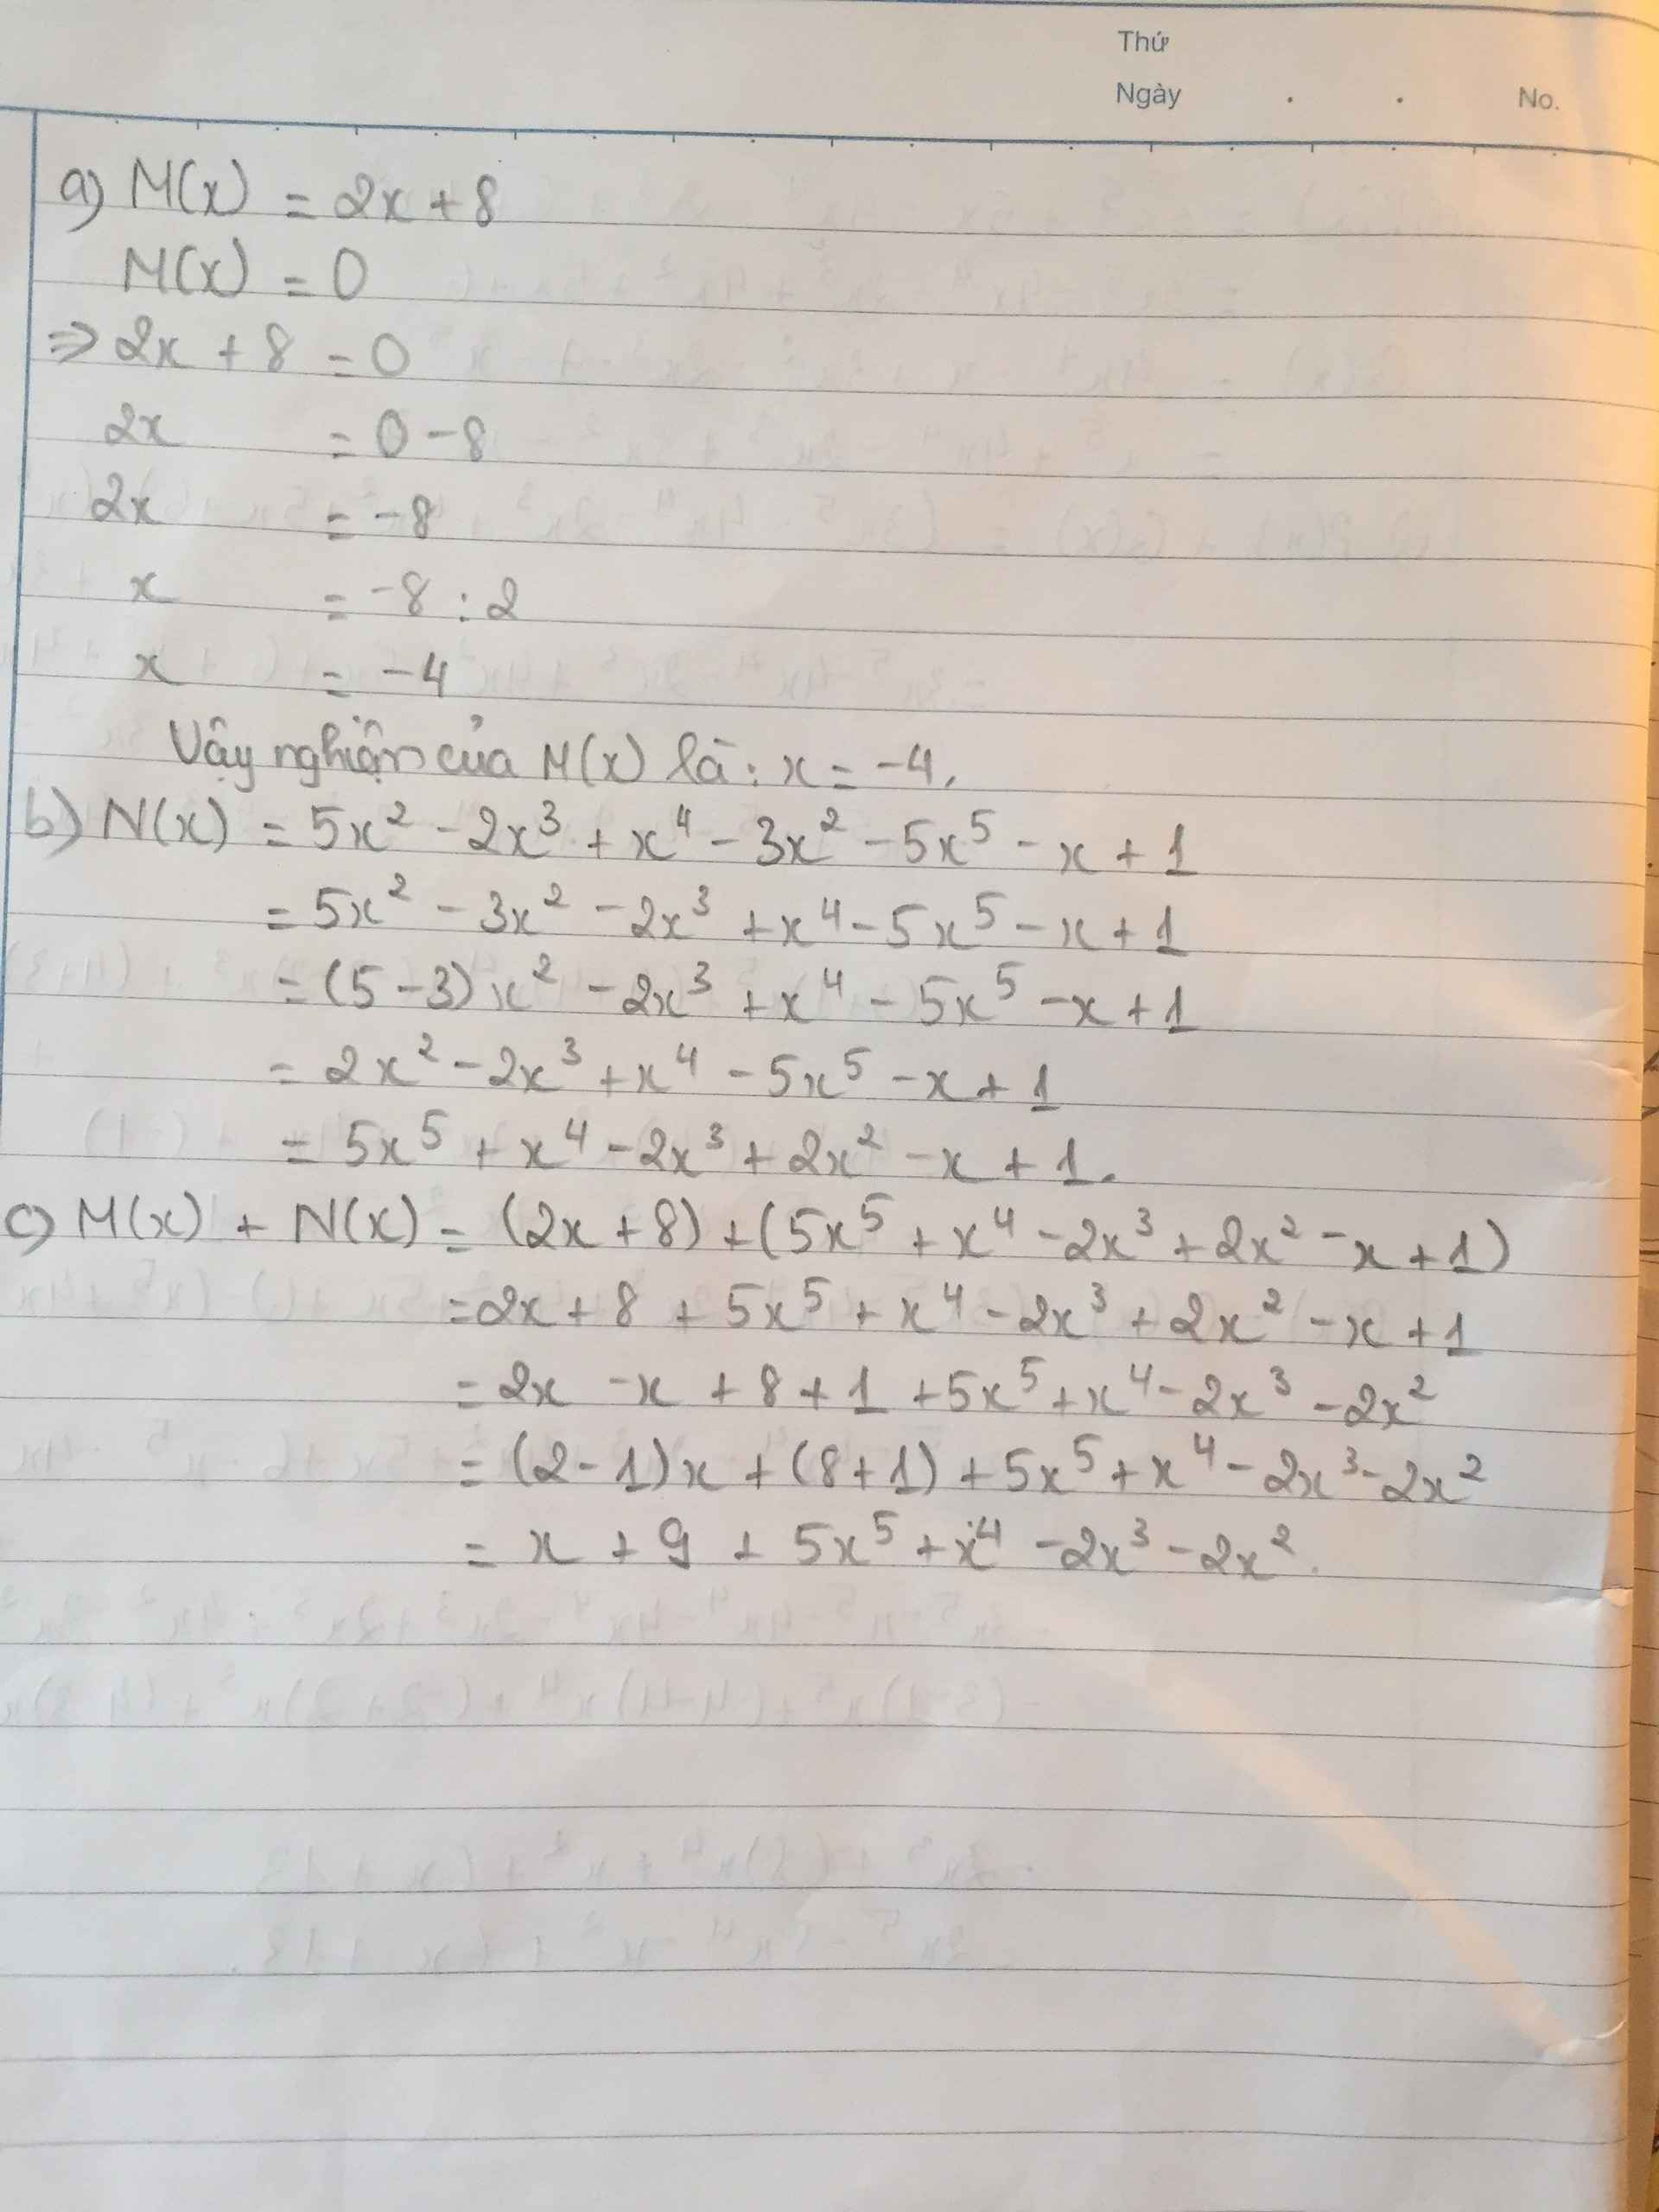 Thứ
Ngày . . No.
a) M(x) = 2x + 8
M(x) = 0
⇒ 2x + 8 = 0
2x = 0 - 8
2x = -8
x = -8 : 2
x = -4
Vậy nghiệm của M(x) là: x = -4.
b) N(x) = 5x² - 2x³ + x⁴ - 3x² - 5x⁵ - x + 1
= 5x² - 3x² - 2x³ + x⁴ - 5x⁵ - x + 1
= (5 - 3)x² - 2x³ + x⁴ - 5x⁵ - x + 1
= 2x² - 2x³ + x⁴ - 5x⁵ - x + 1
= 5x⁵ + x⁴ - 2x³ + 2x² - x + 1.
c) M(x) + N(x) = (2x + 8) + (5x⁵ + x⁴ - 2x³ + 2x² - x + 1)
= 2x + 8 + 5x⁵ + x⁴ - 2x³ + 2x² - x + 1
= 2x - x + 8 + 1 + 5x⁵ + x⁴ - 2x³ - 2x²
= (2 - 1)x + (8 + 1) + 5x⁵ + x⁴ - 2x³ - 2x²
= x + 9 + 5x⁵ + x⁴ - 2x³ - 2x².